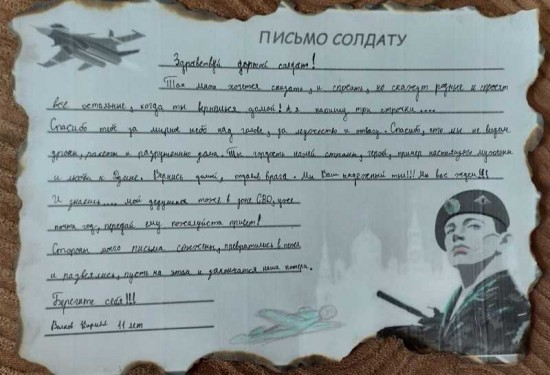 ПИСЬМО СОЛДАТУ
Здравствуй дорогой солдат!
Так много хочется сказать, и спросить, но скажут родные и спросят
все остальные, когда ты вернёшься домой! А я напишу три строчки....
Спасибо тебе за мирное небо над головой, за мужество и отвагу. Спасибо, что мы не видим
дронов, ракеты и разрушенные дома. Ты гордость нашей страны, герой, пример настоящего мужчины
и любви к Родине. Вернись домой, победив врага. Мы Ваш надёжный тыл!!! Мы вас ждём!!!
И знаешь.... мой дедушка тоже в зоне СВО, уже
почти год, передай ему пожалуйста привет!
Стороны моего письма сожжены, превратились в пепел
и развеялись, пусть на этом и закончатся наши потери.
Берегите себя!!!
Волков Кирилл 11 лет